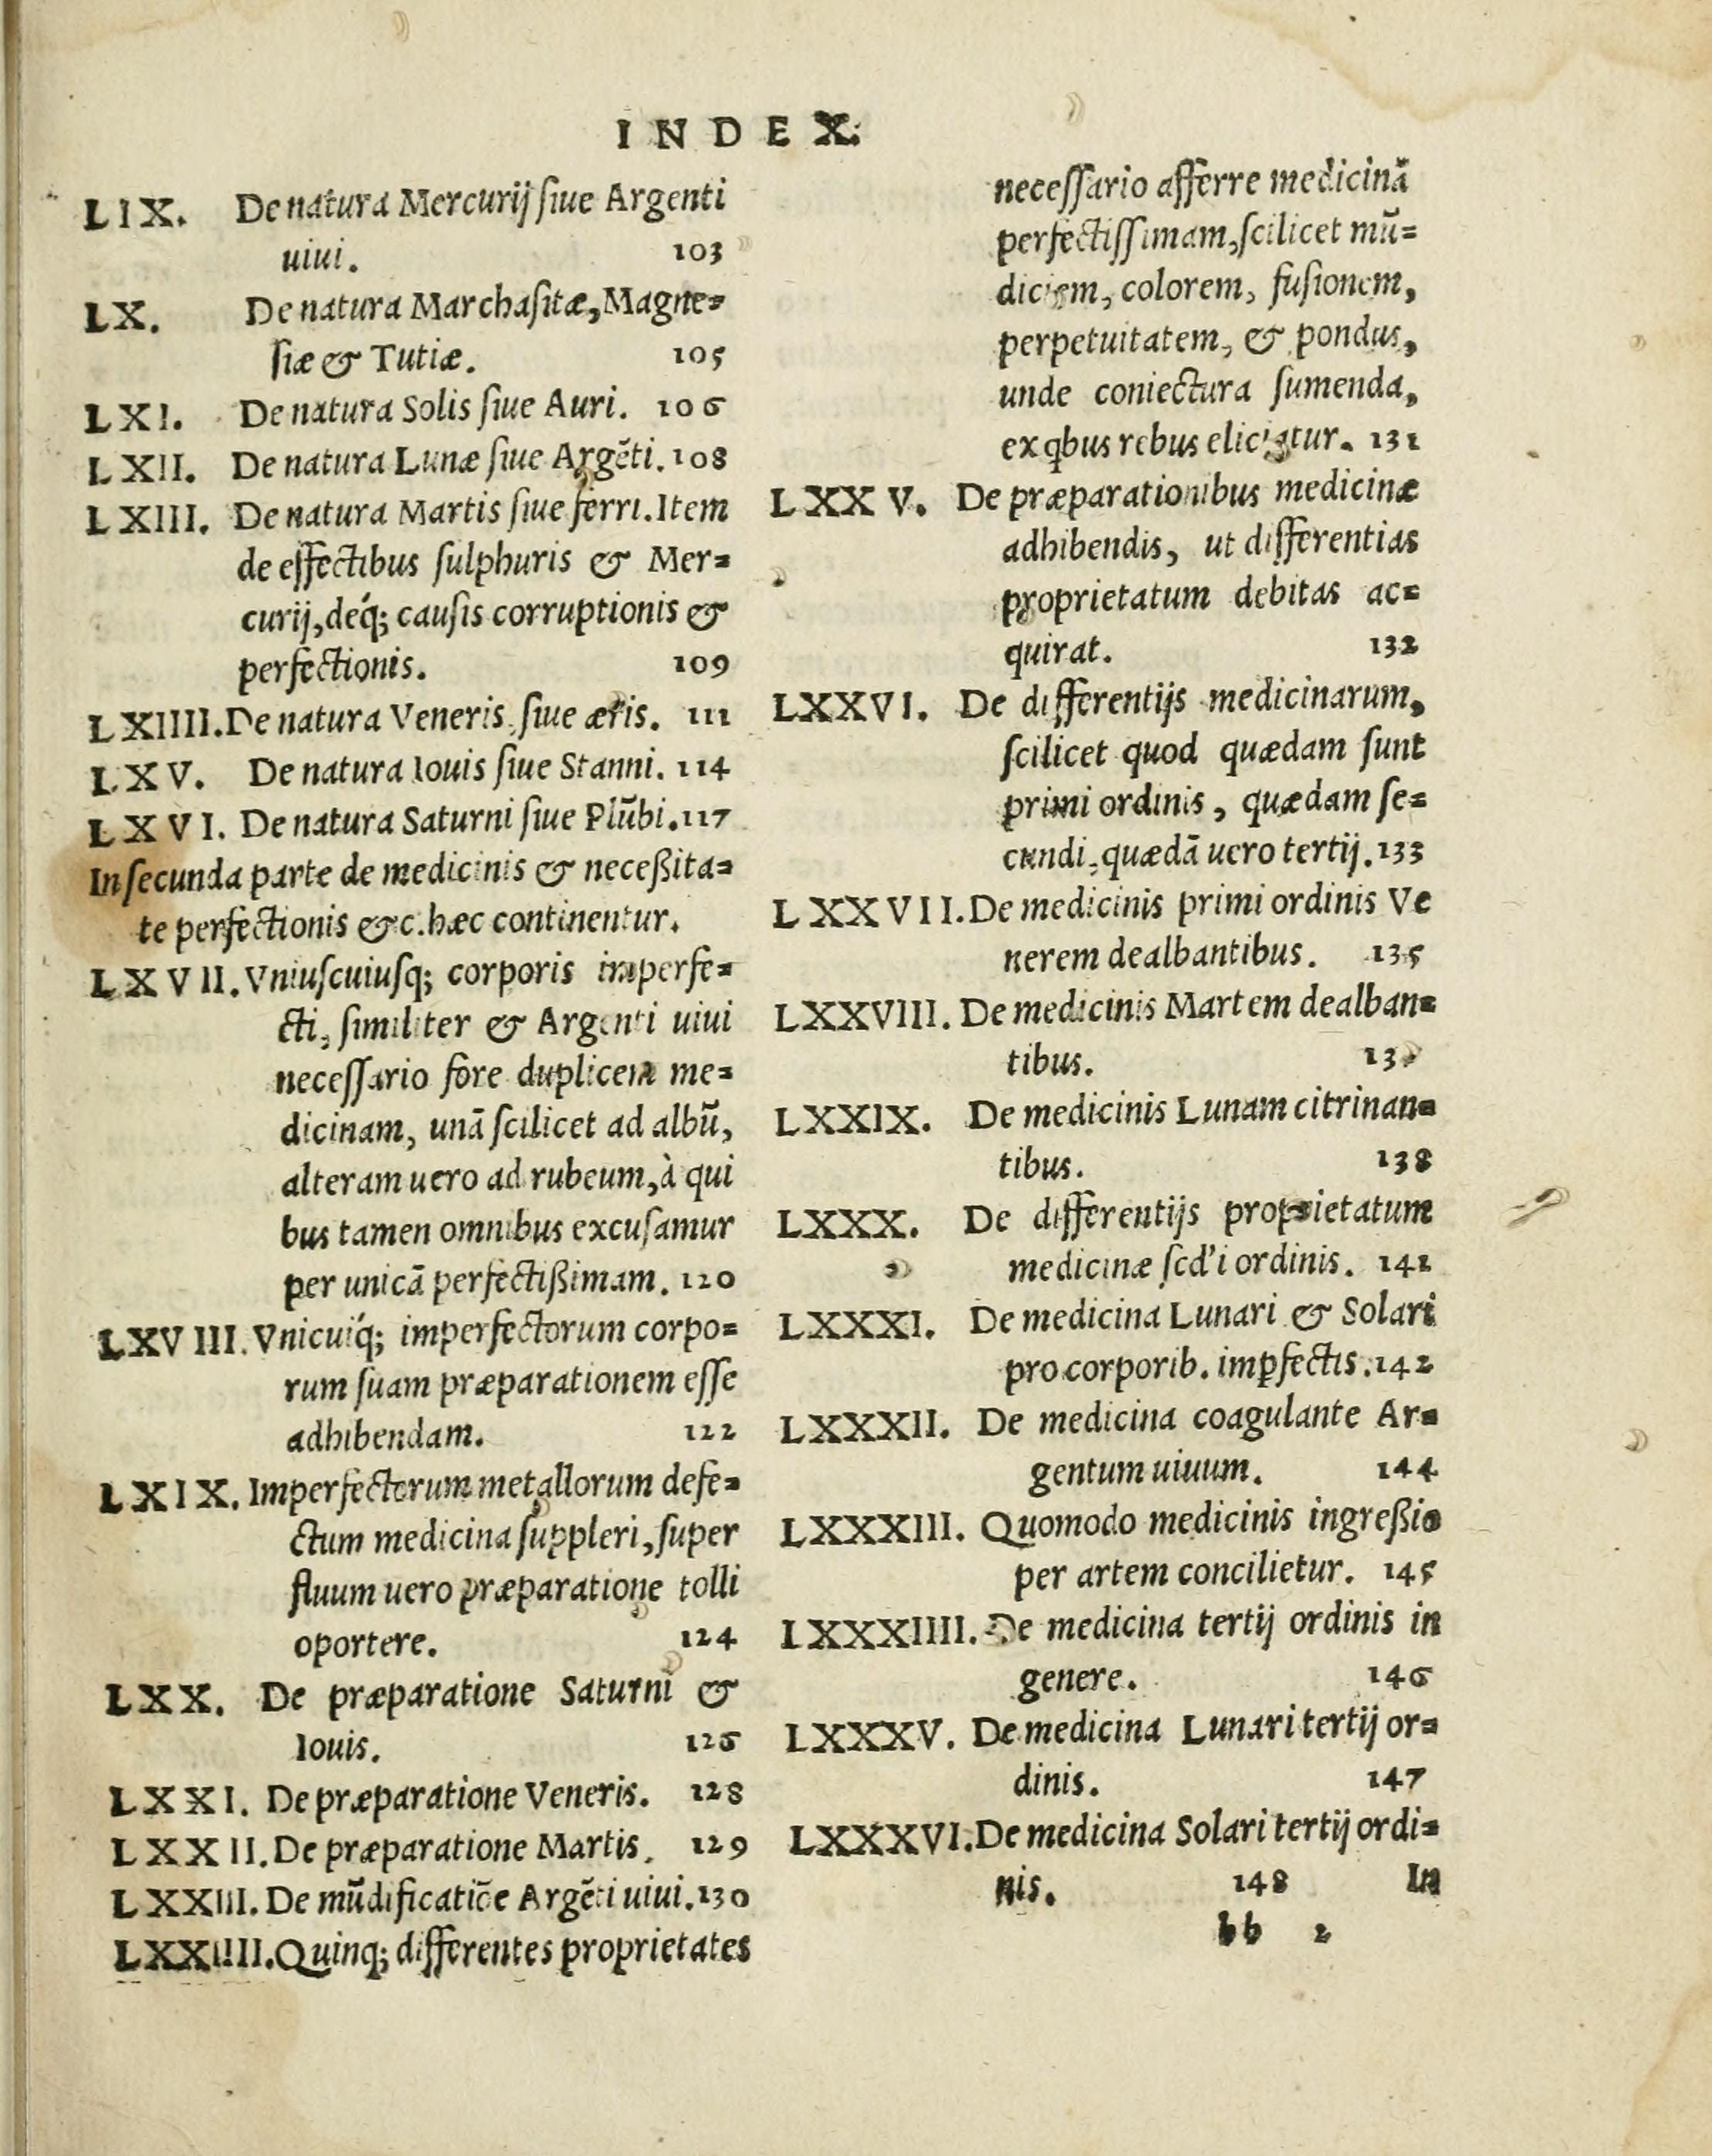 INDEX.
LIX. De natura Mercurij ſiue Argenti
uiui. 103
LX. De natura Marchaſitæ, Magne=
ſiæ & Tutiæ. 105
LXI. De natura Solis ſiue Auri. 106
LXII. De natura Lunæ ſiue Argẽti. 108
LXIII. De natura Martis ſiue ferri. Item
de effectibus ſulphuris & Mer=
curij, déq; cauſis corruptionis &
perfectionis. 109
LXIIII. De natura Veneris ſiue æris. 111
LXV. De natura Iouis ſiue Stanni. 114
LXVI. De natura Saturni ſiue Plũbi. 117
In ſecunda parte de medicinis & neceßita=
te perfectionis &c. hæc continentur.
LXVII. Vniuſcuiuſq; corporis imperfe=
cti, ſimiliter & Argenti uiui
neceſſario fore duplicem me=
dicinam, unã ſcilicet ad albũ,
alteram uero ad rubeum, à qui
bus tamen omnibus excuſamur
per unicã perfectißimam. 120
LXVIII. Vnicuíq; imperfectorum corpo=
rum ſuam præparationem eſſe
adhibendam. 122
LXIX. Imperfectorum metallorum defe=
ctum medicina ſuppleri, ſuper
fluum uero præparatione tolli
oportere. 124
LXX. De præparatione Saturni &
Iouis. 126
LXXI. De præparatione Veneris. 128
LXXII. De præparatione Martis. 129
LXXIII. De mũdificatiõe Argẽti uiui. 130
LXXIIII. Quinq; differentes proprietates
neceſſario afferre medicinã
perfectiſſimam, ſcilicet mũ=
diciem, colorem, fuſionem,
perpetuitatem, & pondus,
unde coniectura ſumenda,
ex qbus rebus eliciatur. 131
LXXV. De præparationibus medicinæ
adhibendis, ut differentias
proprietatum debitas ac=
quirat. 132
LXXVI. De differentijs medicinarum,
ſcilicet quod quædam ſunt
primi ordinis, quædam ſe=
cundi, quædã uero tertij. 133
LXXVII. De medicinis primi ordinis Ve
nerem dealbantibus. 135
LXXVIII. De medicinis Martem dealban=
tibus.
LXXIX. De medicinis Lunam citrinan=
tibus. 138
LXXX. De differentijs proprietatum
medicinæ ſcd'i ordinis. 141
LXXXI. De medicina Lunari & Solari
pro corporib. imꝑfectis. 142
LXXXII. De medicina coagulante Ar=
gentum uiuum. 144
LXXXIII. Quomodo medicinis ingreßio
per artem concilietur. 145
LXXXIIII. De medicina tertij ordinis in
genere. 146
LXXXV. De medicina Lunari tertij or=
dinis. 147
LXXXVI. De medicina Solari tertij ordi=
nis. 148 In
bb 2